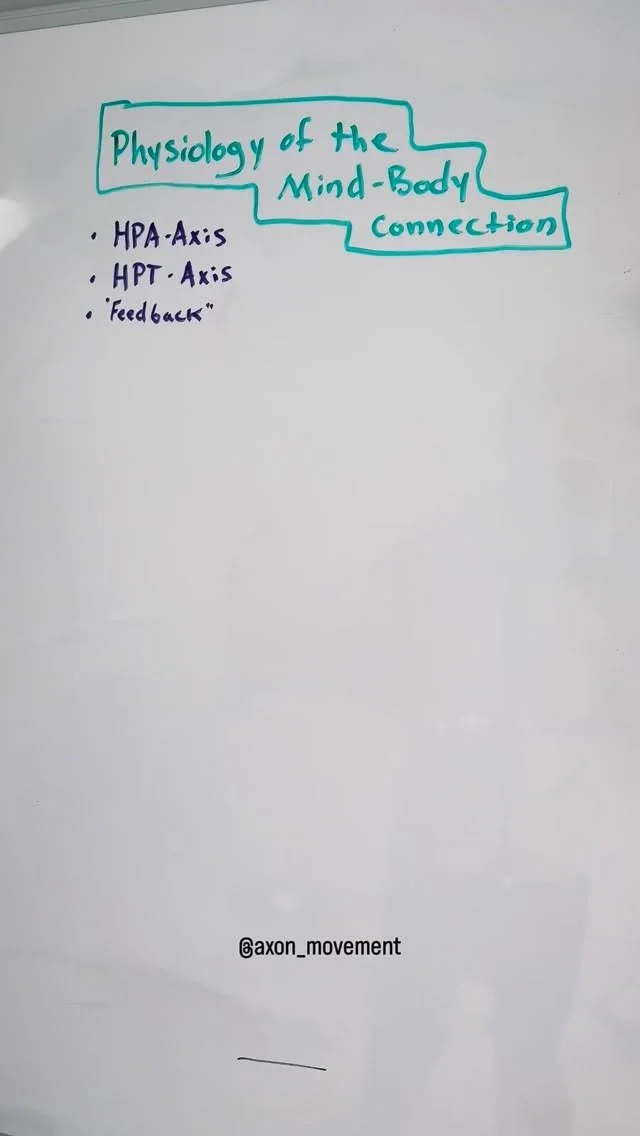 Physiology of the
Mind-Body
Connection
• HPA-Axis
• HPT-Axis
• "Feedback"
@axon_movement